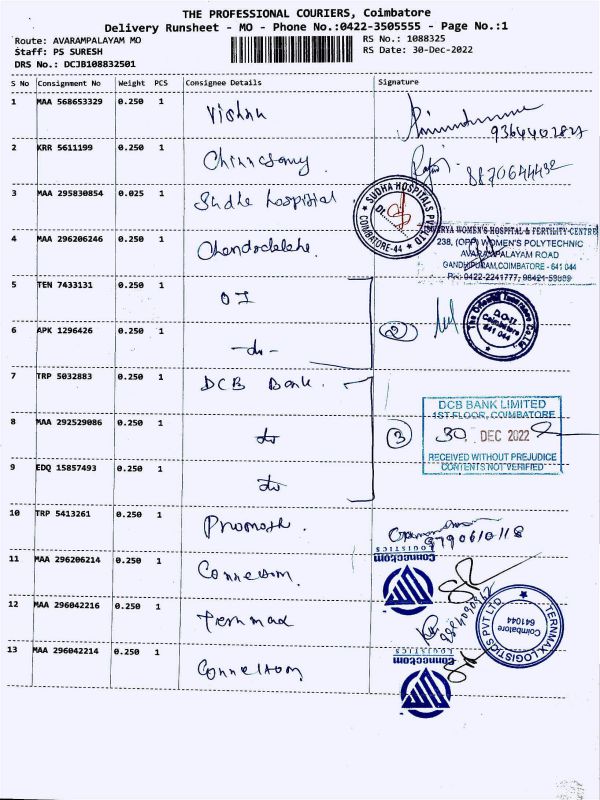 THE PROFESSIONAL COURIERS, Coimbatore
Delivery Runsheet - MO - Phone No.:0422-3505555 - Page No.:1
Route: AVARAMPALAYAM MO
RS No.: 1088325
Staff: PS SURESH
RS Date: 30-Dec-2022
DRS No.: DCJB108832501
S No Consignment No Weight PCS Consignee Details Signature
1 MAA 568653329 0.250 1 Vishnu
9364402827
2 KRR 5611199 0.250 1 Chinnasamy
8870644432
3 MAA 295830854 0.025 1 Sudha hospital
SUDHA HOSPITALS PVT LTD
COIMBATORE-44
4 MAA 296206246 0.250 1
WOMEN'S HOSPITAL & FERTILITY CENTRE
238, (OPP) WOMEN'S POLYTECHNIC
AVARAMPALAYAM ROAD
GANDHIPURAM, COIMBATORE - 641 044
5 TEN 7433131 0.250 1 OI
The Oriental Insurance Co. Ltd
D.O-II
Coimbatore
641 044
6 APK 1296426 0.250 1 -do-
2
7 TRP 5032883 0.250 1 DCB Bank.
DCB BANK LIMITED
1ST FLOOR, COIMBATORE
8 MAA 292529086 0.250 1 do
3
30 DEC 2022
RECEIVED WITHOUT PREJUDICE
CONTENTS NOT VERIFIED
9 EDQ 15857493 0.250 1 do
10 TRP 5413261 0.250 1
11 MAA 296206214 0.250 1 Connectom.
Connectom
LOGISTICS
12 MAA 296042216 0.250 1
TERNMAX LOGISTICS PVT LTD
Coimbatore
641044
13 MAA 296042214 0.250 1 Connectom
Connectom
LOGISTICS